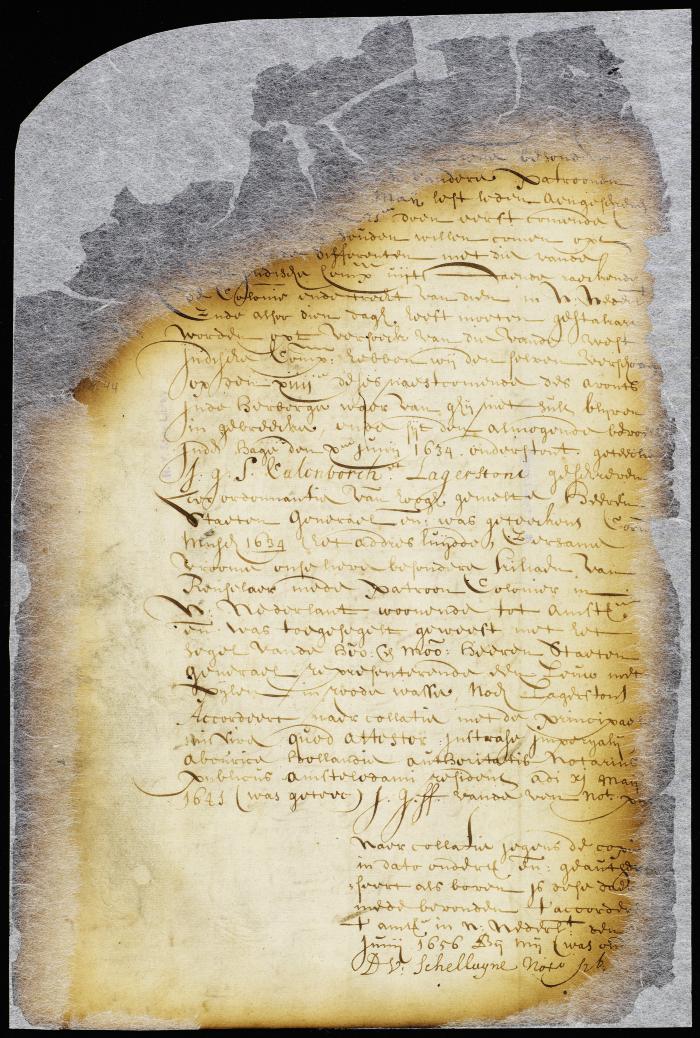 besond
andere Patroonen
Maij lest leden aengeschre
deen eerst comende
souden willen comen opt
differenten met die vande
Indische Comp: uijt saende
de Colonie ende trecht van dien in N: Neder
Ende alsoo dien dagh heeft moeten gestatueer
worden opt versoeck van die vande West
Indische Comp: hebben wij den selven verscho
op den xiiij deses naestcomende des avonts
Inde herberge waer van ghij niet sult blijven
in gebreecke, ende sijt den almogende bevo
Inden Hage den x Junij 1634. onderstont. geteeck
H. g. S. Culenborch Lagerstont geschreven
ter ordonnantie van hoogh gemelte Heeren
Staeten Generael en: was geteeckent Corn
Musch 1634 het addres luijdde, Eersame
vroome onse lieve besondere Kiliaen van
Renselaer mede patroon Colonier in
N: Nederlant woonende tot Amst
en: was toegesegelt geweest met het
segel vande Hoo: Mo: Heeren Staeten
Generael representerende een Leuw met
Pijlen in roode wasse, noch Lagerstont
Accordeert naer collatie met de principae
quod Attestor
Hollandia authoritatis Notarius
Publicus Amstelodami resident adi xi Maij
1641 (was geteec) J. vande ven Not. pu
Naer collatie jegens de copi
in dato onder en: geauth
seert als boven is dese daer
mede bevonden t'accorder
t' amst in N: Nederl: den
Junij 1656 Bij mij (was on
D V: Schelluyne Not pub.